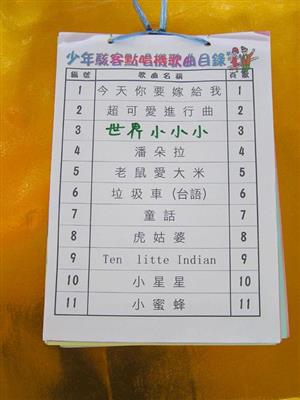 少年駭客點唱機歌曲目錄
編號 歌曲名稱 頁數
1 今天你要嫁給我 1
2 超可愛進行曲 2
3 世界小小小 3
4 潘朵拉 4
5 老鼠愛大米 5
6 垃圾車(台語) 6
7 童話 7
8 虎姑婆 8
9 Ten litte Indian 9
10 小星星 10
11 小蜜蜂 11